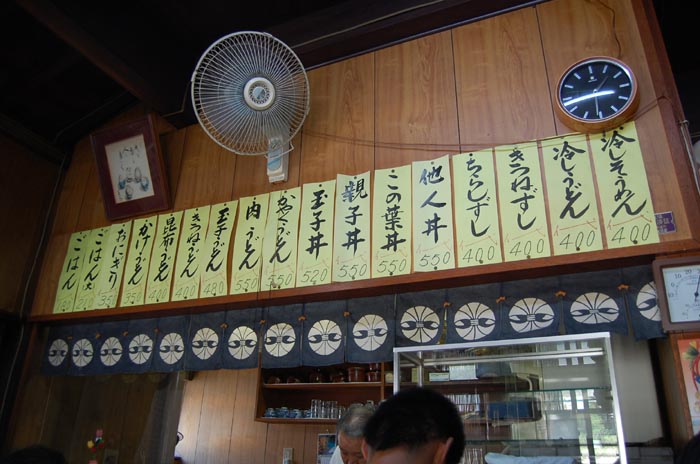 冷しそうめん
400
冷しうどん
400
きつねずし
400
ちらしずし
400
他人丼
550
この葉丼
550
親子丼
550
玉子丼
520
かやくうどん
550
肉うどん
550
玉子うどん
480
きつねうどん
400
昆布うどん
400
かけうどん
350
おにぎり
ごはん大
ごはん